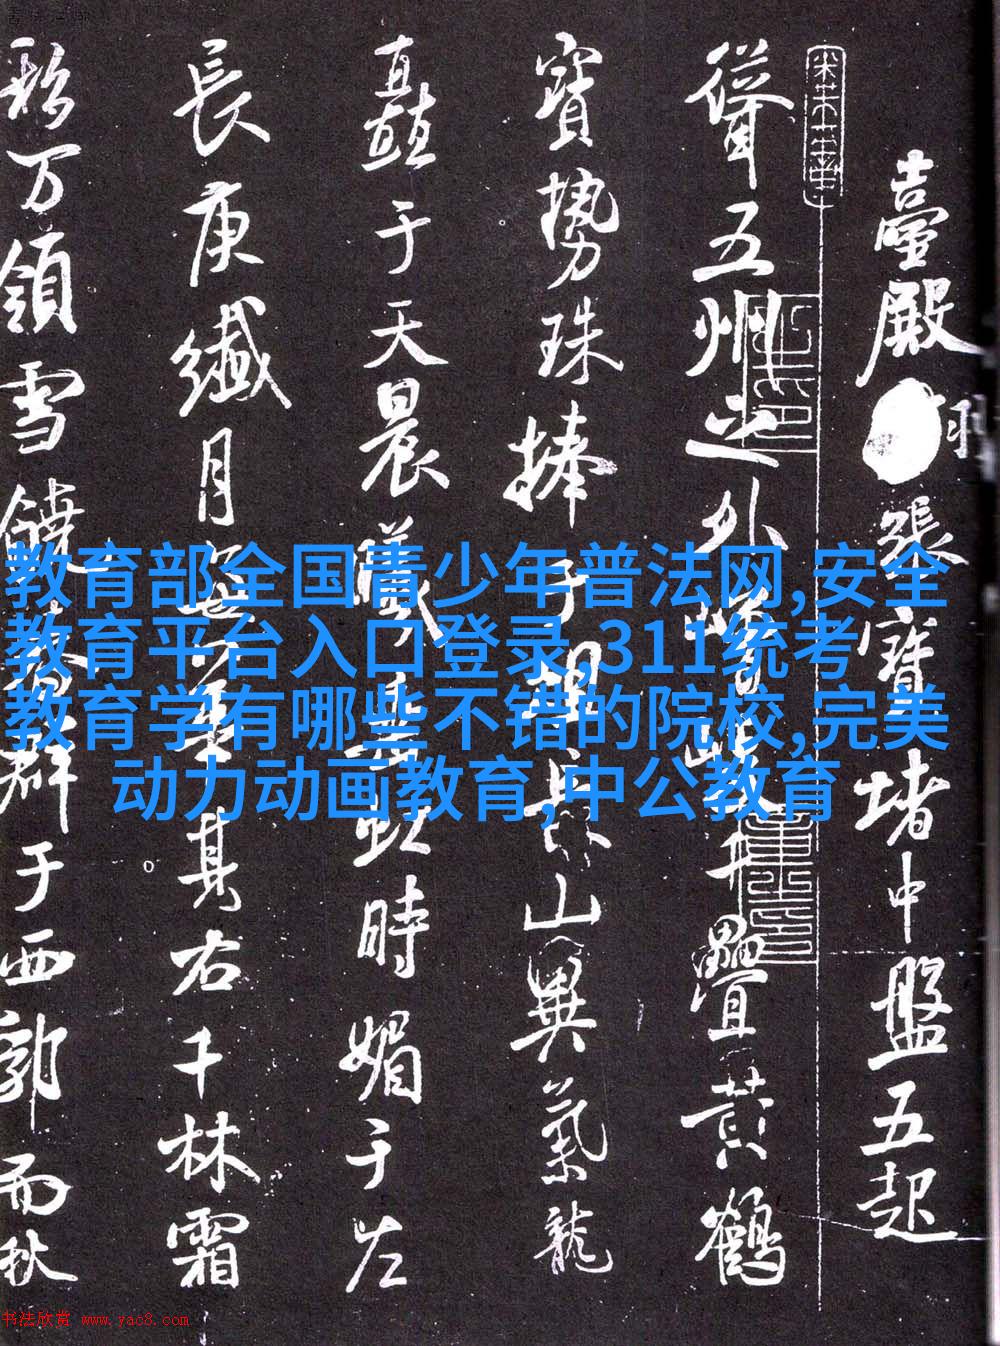 臺殿張寶堵中盤五起
聳五州之外疊黃鶴
寶勢珠捧山異氣龍
矗于天晨時媚于左
長庚纖月其右千林霜
彩万領雪饒群于西郭而秋
教育部全国青少年普法网,安全
教育平台入口登录,311统考
教育学有哪些不错的院校,完美
动力动画教育,中公教育
书法欣赏 www.yac8.com